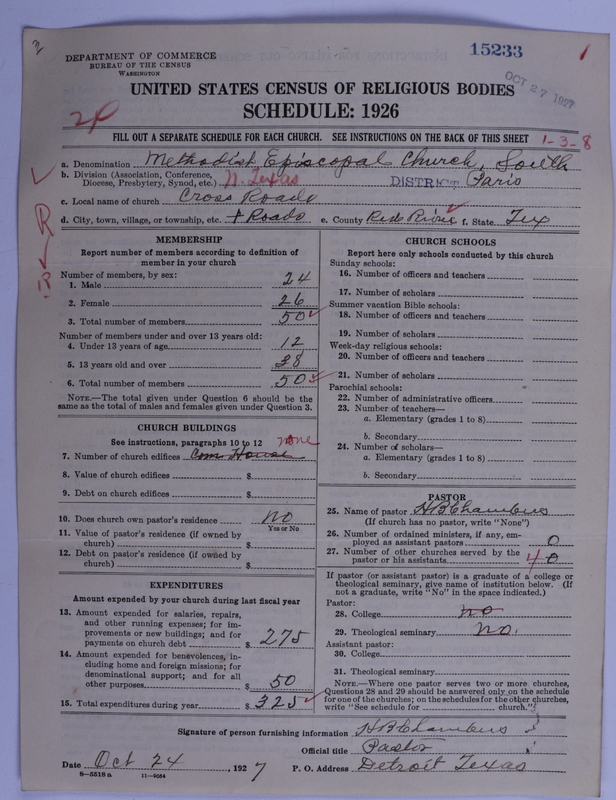 2
DEPARTMENT OF COMMERCE
BUREAU OF THE CENSUS
WASHINGTON
15233
1
OCT 27 1927
UNITED STATES CENSUS OF RELIGIOUS BODIES
SCHEDULE: 1926
FILL OUT A SEPARATE SCHEDULE FOR EACH CHURCH. SEE INSTRUCTIONS ON THE BACK OF THIS SHEET 1-3-8
a. Denomination Methodist Episcopal Church, South
b. Division (Association, Conference,
Diocese, Presbytery, Synod, etc.) N. Texas DISTRICT Paris
c. Local name of church Cross Roads
d. City, town, village, or township, etc. + Roads e. County Red River f. State Tex
R
MEMBERSHIP
Report number of members according to definition of
member in your church
Number of members, by sex:
1. Male 24
2. Female 26
3. Total number of members 50
Number of members under and over 13 years old:
4. Under 13 years of age 12
5. 13 years old and over 38
6. Total number of members 50
NOTE.—The total given under Question 6 should be
the same as the total of males and females given under Question 3.
CHURCH BUILDINGS
See instructions, paragraphs 10 to 12 none
7. Number of church edifices Com House
8. Value of church edifices $
9. Debt on church edifices $
10. Does church own pastor's residence No
Yes or No
11. Value of pastor's residence (if owned by
church) $
12. Debt on pastor's residence (if owned by
church) $
EXPENDITURES
Amount expended by your church during last fiscal year
13. Amount expended for salaries, repairs,
and other running expenses; for im-
provements or new buildings; and for
payments on church debt $ 275
14. Amount expended for benevolences, in-
cluding home and foreign missions; for
denominational support; and for all
other purposes $ 50
15. Total expenditures during year $ 325
CHURCH SCHOOLS
Report here only schools conducted by this church
Sunday schools:
16. Number of officers and teachers
17. Number of scholars
Summer vacation Bible schools:
18. Number of officers and teachers
19. Number of scholars
Week-day religious schools:
20. Number of officers and teachers
21. Number of scholars
Parochial schools:
22. Number of administrative officers
23. Number of teachers—
a. Elementary (grades 1 to 8)
b. Secondary
24. Number of scholars—
a. Elementary (grades 1 to 8)
b. Secondary
PASTOR
25. Name of pastor H B Chambers
(If church has no pastor, write "None")
26. Number of ordained ministers, if any, em-
ployed as assistant pastors 0
27. Number of other churches served by the
pastor or his assistants 4 0
If pastor (or assistant pastor) is a graduate of a college or
theological seminary, give name of institution below. (If
not a graduate, write "No" in the space indicated.)
Pastor:
28. College no
29. Theological seminary no.
Assistant pastor:
30. College
31. Theological seminary
NOTE.—Where one pastor serves two or more churches,
Questions 28 and 29 should be answered only on the schedule
for one of the churches; on the schedules for the other churches,
write "See schedule for church."
Signature of person furnishing information H B Chambers
Official title Pastor
Date Oct 24, 1927 P. O. Address Detroit Texas
8—5518a 11—9054